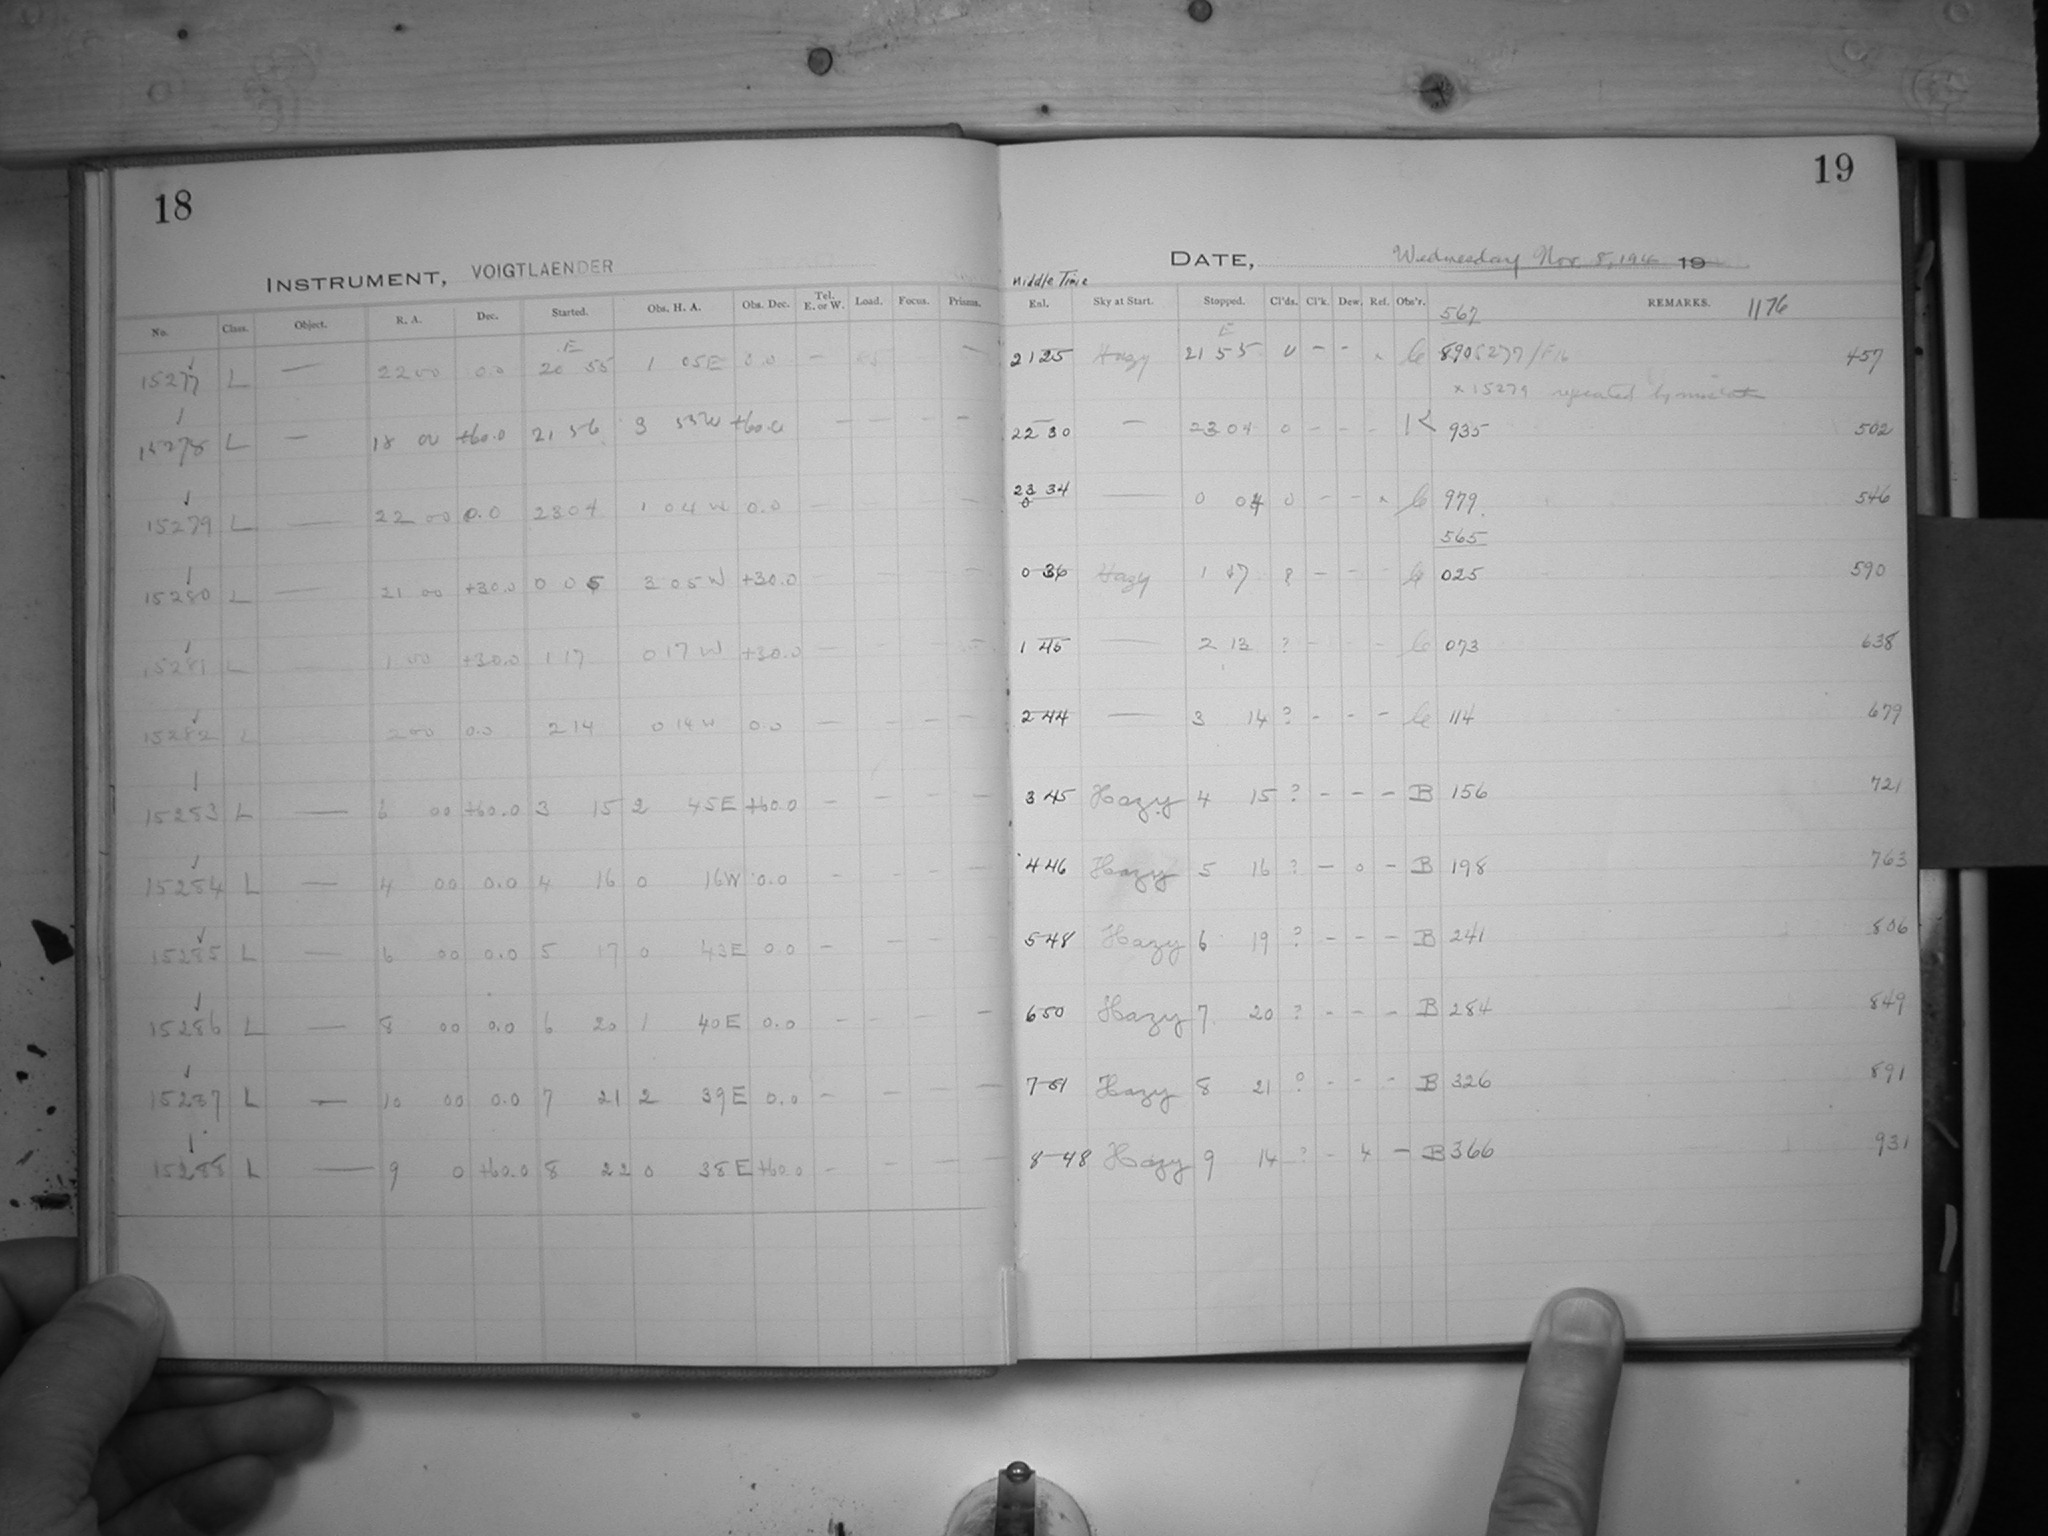 18
INSTRUMENT, VOIGTLAENDER
No. Class. Object. R. A. Dec. Started. Obs. H. A. Obs. Dec. Tel. E. or W. Load. Focus. Prisms.
E
15277 L — 22 00 0.0 20 55 1 05E 0.0 — —
15278 L — 18 00 +60.0 21 56 3 53W +60.0 — — — —
15279 L — 22 00 0.0 23 04 1 04 W 0.0 — — —
15280 L — 21 00 +30.0 0 05 3 05 W +30.0 — — —
15281 L — 1 00 +30.0 1 17 0 17 W +30.0 — — — —
15282 L 2 00 0.0 2 14 0 14 W 0.0 — — — —
15283 L — 6 00 +60.0 3 15 2 45E +60.0 — — — —
15284 L — 4 00 0.0 4 16 0 16W 0.0 — — — —
15285 L — 6 00 0.0 5 17 0 43E 0.0 — — —
15286 L — 8 00 0.0 6 20 1 40E 0.0 — — — —
15287 L — 10 00 0.0 7 21 2 39E 0.0 — — — —
15288 L — 9 0 +60.0 8 22 0 38E +60.0 — — — —
19
DATE, Wednesday Nov. 8, 19
Middle Time
Enl. Sky at Start. Stopped. Cl'ds. Cl'k. Dew. Ref. Obs'r. REMARKS. 1176
567
E
21 25 Hazy 21 55 0 — — × 8905277/F16 457
× 15279 repeated by mistake
22 30 — 23 04 0 — — — K 935 502
23 34 — 0 04 0 — — × 979 546
565
0 36 Hazy 1 17 8 — — — 025 590
1 45 — 2 13 ? — — 073 638
2 44 — 3 14 ? — — — 114 679
3 45 Hazy 4 15 ? — — — B 156 721
4 46 Hazy 5 16 ? — 0 — B 198 763
5 48 Hazy 6 19 ? — — — B 241 806
6 50 Hazy 7 20 ? — — — B 284 849
7 51 Hazy 8 21 ? — — — B 326 891
8 48 Hazy 9 14 ? — 4 — B 366 931